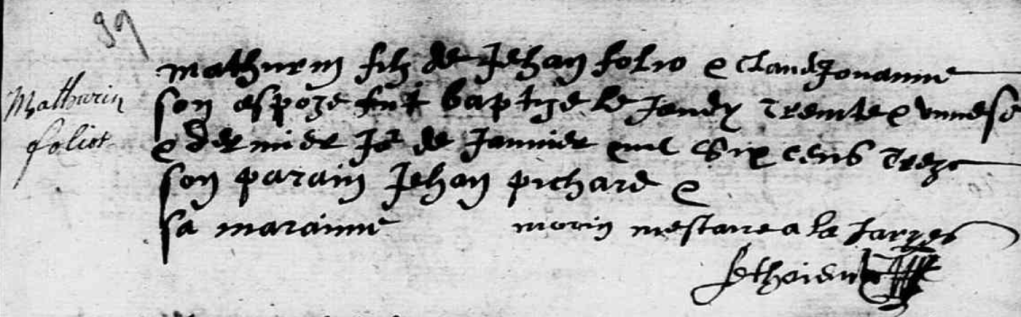 39
Mathurin
foliot
mathurin filz de Jehan folio e claude Jouanne
son espoze fut baptize le Jeudy trente e unnesme
e dernier Jo de Janvier mil six cens treze
son parain Jehan pichard e
sa maraine morin mestaire a la